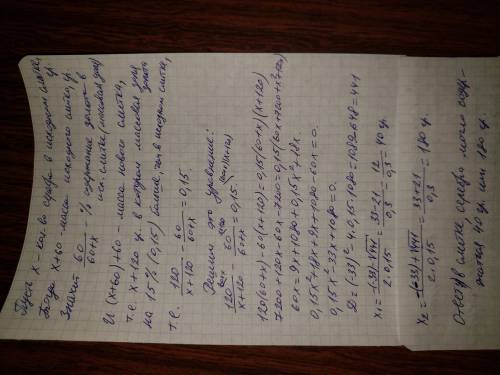 Пусть x - кол-во серебра в исходном слитке,
Тогда x+60 - масса исходного слитка, гр.
Значит 60/(60+x) - % содержание золота в
исх. слитке (массовая доля)
И (x+60)+60 - масса нового слитка,
т.е. x+120 гр. в котором массовая доля золота
на 15% (0,15) больше, чем в исходном слитке,
т.е. 120/(x+120) - 60/(60+x) = 0,15
Решим это уравнение:
120/(x+120) - 60/(60+x) = 0,15
120(60+x)-60(x+120)=0,15(60+x)(x+120)
7200+120x-60x-7200=0,15(60x+7200+x²+120x)
60x=9x+1080+0,15x²+18x
0,15x²+18x+9x+1080-60x=0
0,15x²-33x+1080=0.
D=(-33)²-4·0,15·1080=1089-648=441
x₁=(-(-33)-√441)/(2·0,15)=(33-21)/0,3=12/0,3=40 гр.
x₂=(-(-33)+√441)/(2·0,15)=(33+21)/0,3=180 гр.
Ответ: В слитке серебра могло содер-
жаться 40 гр. или 180 гр.